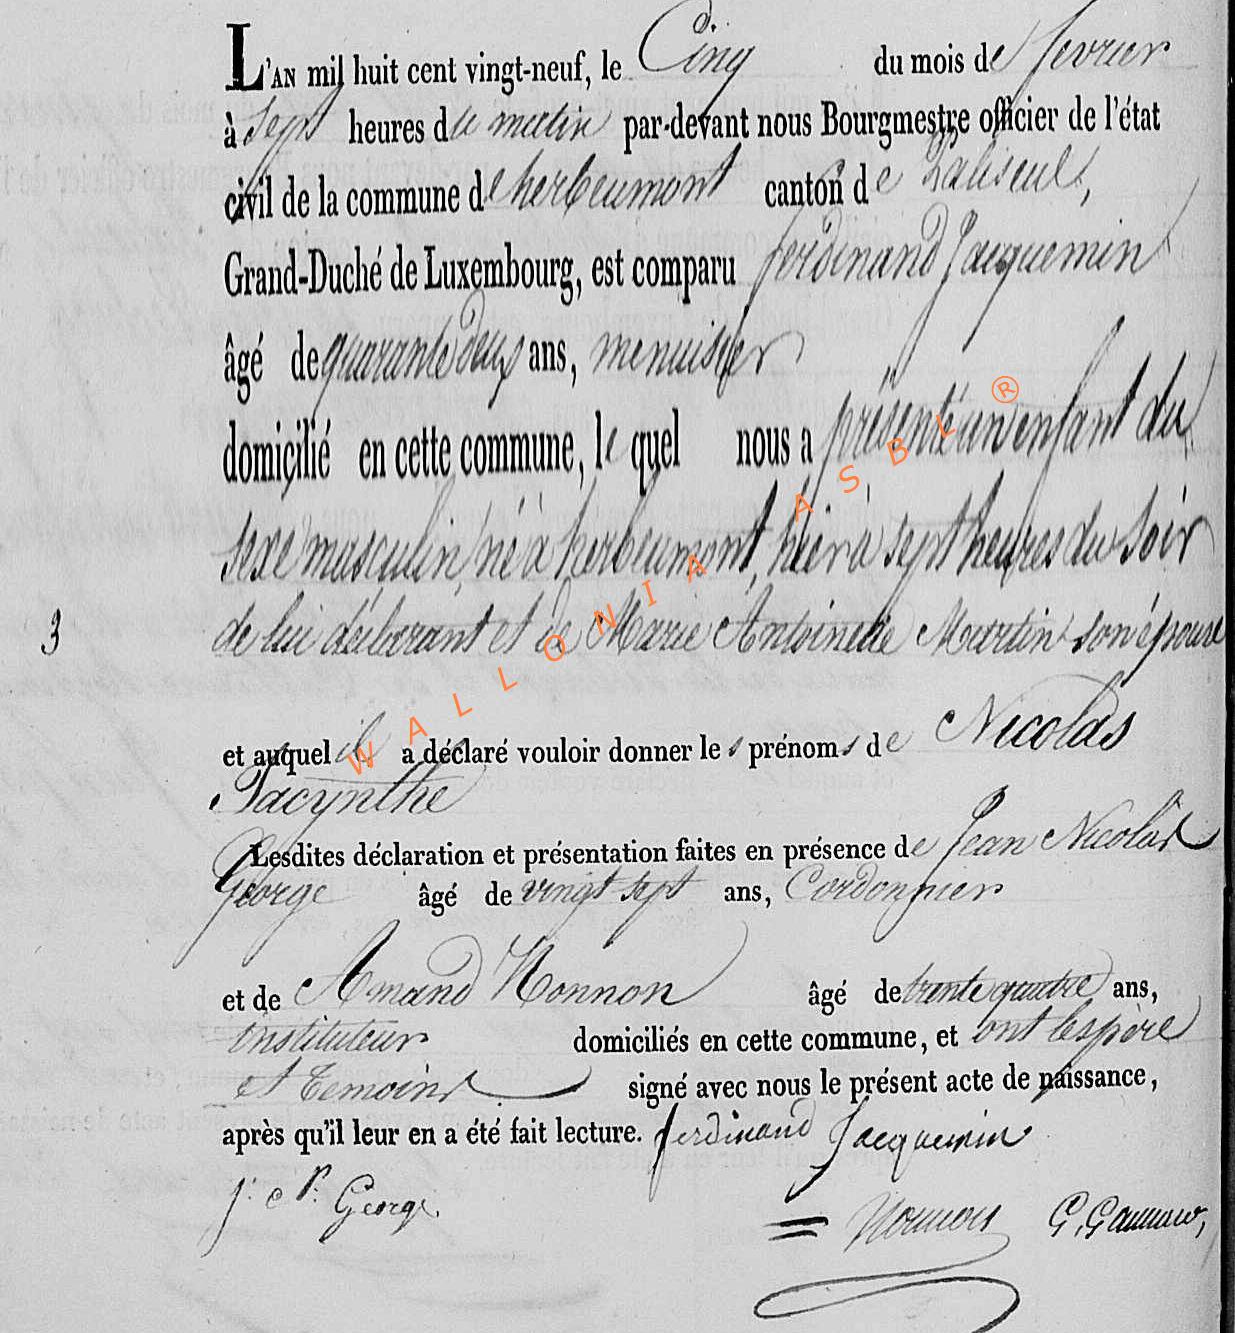 L'AN mil huit cent vingt-neuf, le Cinq du mois de fevrier
à Sept heures du matin par-devant nous Bourgmestre officier de l'état
civil de la commune de herbeumont canton de Paliseul,
Grand-Duché de Luxembourg, est comparu ferdinand Jacquemin
âgé de quarante deux ans, menuisier
domicilié en cette commune, le quel nous a présenté un enfant du
sexe masculin, né à herbeumont, hier à sept heures du soir
3 de lui déclarant et de Marie Antoinette Martin son épouse
et auquel il a déclaré vouloir donner les prénoms de Nicolas
Jacynthe
Lesdites déclaration et présentation faites en présence de Jean Nicolas
George âgé de vingt sept ans, Cordonnier
et de Amand Nonnon âgé de trente quatre ans,
instituteur domiciliés en cette commune, et ont les père
et temoins signé avec nous le présent acte de naissance,
après qu'il leur en a été fait lecture. ferdinand Jacquemin
George.
WALLONIA ASBL ®